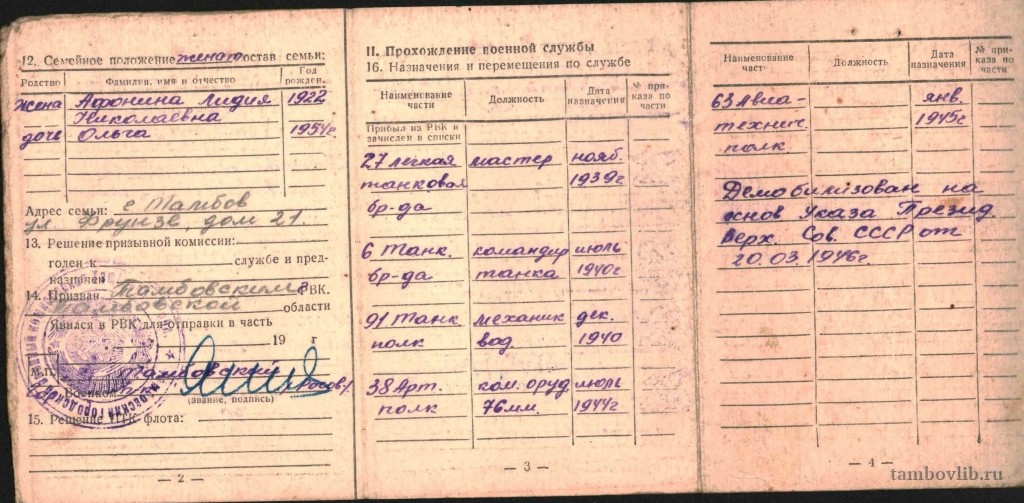 12. Семейное положение женат состав семьи:
Родство Фамилия, имя и отчество Год рожден.
жена Афонина Лидия 1922
Николаевна
дочь Ольга 1954г
Адрес семьи: г Тамбов
ул. Фрунзе, дом 21
13. Решение призывной комиссии:
годен к службе и пред-
назначен
14. Призван Тамбовским РВК.
Тамбовской области
Явился в РВК для отправки в часть
19 г
М.П. Тамбовский
Военком
(звание, подпись)
15. Решение флота:
— 2 —
II. Прохождение военной службы
16. Назначения и перемещения по службе
Наименование части Должность Дата назначения № при-каза по части
Прибыл из РВК и
зачислен в списки
27 легкая мастер нояб.
танковая 1939г
бр-да
6 Танк. командир июль
бр-да танка 1940г
91 танк. механик дек.
полк вод 1940
38 Арт. ком. оруд июль
полк 76мм. 1944г.
— 3 —
Наименование част Должность Дата назначения № при-каза по части
63 Авиа- янв.
технич. 1945г
полк
Демобилизован на
основ Указа Презид.
Верх. Сов. СССР от
20.03.1946г.
— 4 —
tambovlib.ru